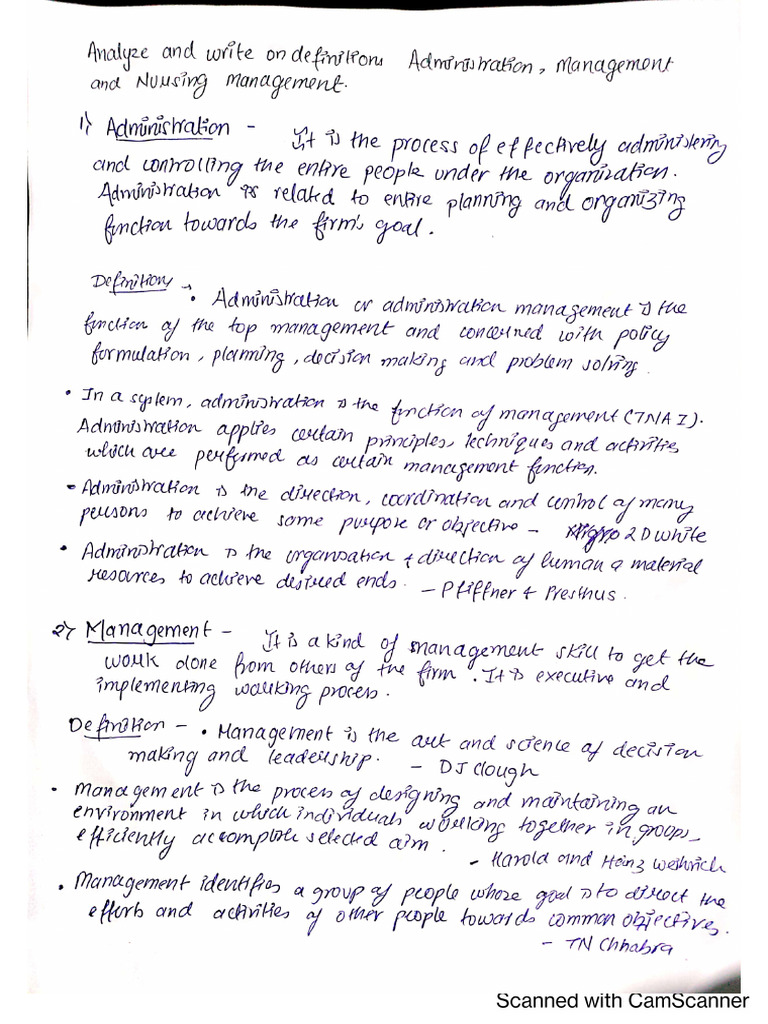 Analyze and write on definitions Administration, Management
and Nursing management.
1) Administration - It is the process of effectively administering
and controlling the entire people under the organization.
Administration is related to entire planning and organizing
function towards the firm's goal.
Definition → • Administration or administration management is the
function of the top management and concerned with policy
formulation, planning, decision making and problem solving.
• In a system, administration is the function of management (TNAI).
Administration applies certain principles, techniques and activities
which are performed as certain management function.
• Administration is the direction, coordination and control of many
persons to achieve some purpose or objective - D white
• Administration is the organisation & direction of human & material
resources to achieve desired ends. - Pfiffner & Presthus.
2) Management - It is a kind of management skill to get the
work done from others of the firm. It is executive and
implementing working process.
Definition - • Management is the art and science of decision
making and leadership. - DJ Clough
• Management is the process of designing and maintaining an
environment in which individuals working together in groups,
efficiently accomplish selected aim.
- Harold and Heinz Weihrich
• Management identifies a group of people whose goal is to direct the
efforts and activities of other people towards common objectives.
- TN Chhabra
Scanned with CamScanner